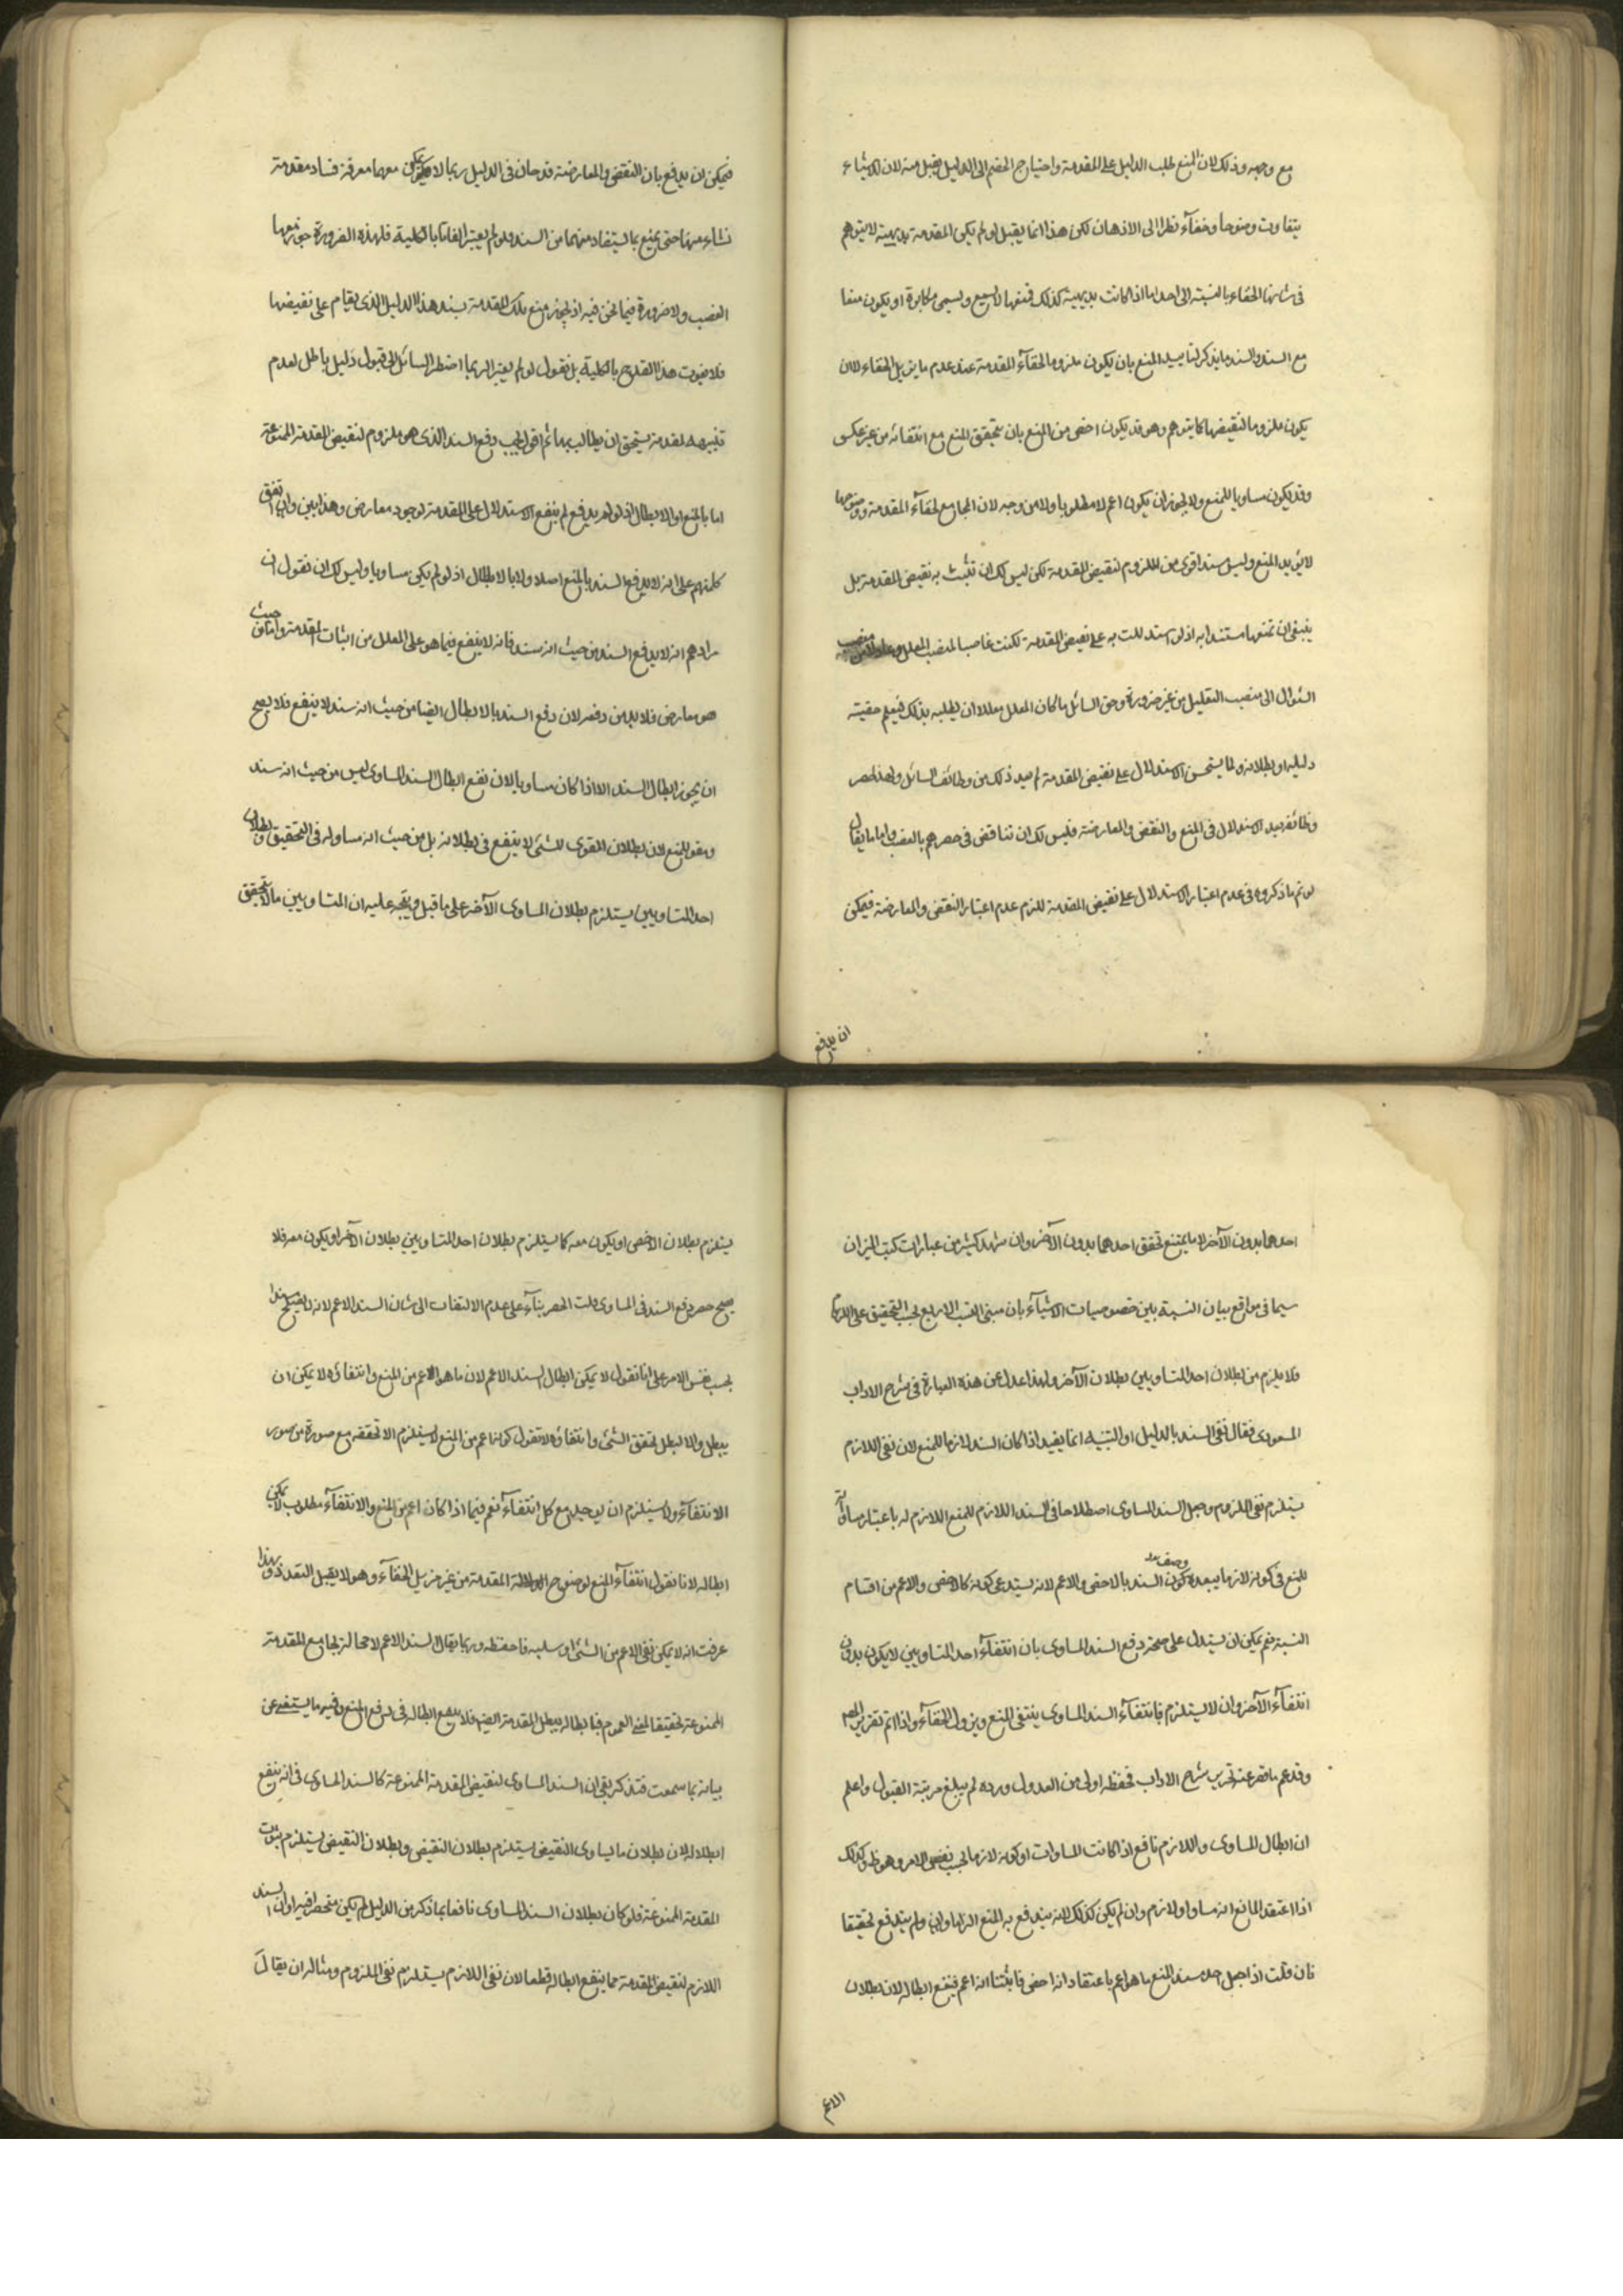 مع وجهه وذلك لان المنع طلب الدليل على المقدمة واحتياج الخصم الى الدليل يقبل منه لان الاشياء
يتفاوت وضوحا وخفاء نظرا الى الاذهان لكن هذا انما يقبل لو لم يكن المقدمة بديهية لا يتوهم
في شانها الخفاء بالنسبة الى احد اما اذا كانت بديهية كذلك فمنعها لا يسمع ويسمى مكابرة او يكون منعا
مع السند والسند ما يذكر لتاييد المنع بان يكون ملزوما لخفاء المقدمة عند عدم ما يزيل الخفاء لا لان
يكون ملزوما لنقيضها كما يتوهم وهو قد يكون اخص من المنع بان يتحقق المنع مع انتفائه من غير عكس
وقد يكون مساويا للمنع ولا يجوز ان يكون اعم لا مطلقا ولا من وجه لان المجامع لخفاء المقدمة ووضوحها
لا يؤيد المنع وليس سند اقوى من الملزوم لنقيض المقدمة لكن ليس لك ان تثبت به نقيض المقدمة بل
ينبغي ان تمنعها مستندا به اذ لو استدللت به على نقيض المقدمة لكنت غاصبا لمنصب المعلل
السؤال الى منصب التعليل من غير ضرورة وحق السائل ما كان المعلل معللا ان يطلبه بذلك فيعلم حقيته
دليله او بطلانه ولما يستحسن الاستدلال على نقيض المقدمة لم يعد ذلك من وظائف السائل ولهذا حصر
وظائفه بعد الاستدلال في المنع والنقض والمعارضة فليس لك ان تناقض في حصرهم بالغصب واما ما يقال
لو تم ما ذكروه في عدم اعتبار الاستدلال على نقيض المقدمة للزم عدم اعتبار النقض والمعارضة فيمكن
ان يدفع
فيمكن ان يدفع بان النقض والمعارضة قدحان في الدليل ربما لا يمكن معهما معرفة فساد مقدمة
نشاء منها حتى يمنع بما يستفاد منهما من السند فلو لم يعتبرا لفاتا بالكلية فلهذه الضرورة جوز معها
الغصب ولا ضرورة فيما نحن فيه اذ يجوز منع تلك المقدمة بسند هذا الدليل الذي يقام على نقيضها
فلا يفوت هذا القدح بالكلية بل نقول لو لم يعتبرا ربما اضطر السائل الى قبول دليل باطل لعدم
تنبهه لمقدمة يستحق ان يطالب بها ثم اقول يجب دفع السند الذي هو ملزوم لنقيض المقدمة الممنوعة
اما بالمنع او الابطال اذ لو لم يدفع لم ينفع الاستدلال على المقدمة لوجود معارض وهذا بين وان اتفق
كلمتهم على انه لا يدفع السند بالمنع اصلا ولا بالابطال اذ لو لم يكن مساويا وليس لك ان تقول ان
مرادهم انه لا يدفع السند من حيث انه سند فانه لا ينفع فيما هو على المعلل من اثبات المقدمة واما من حيث
هو معارض فلا بد من دفعه لان دفع السند بالابطال ايضا من حيث انه سند لا ينفع فلا يصح
ان يجوز ابطال السند الا اذا كان مساويا لان نفع ابطال السند المساوى ليس من حيث انه سند
ومقو للمنع لان بطلان المقوى للشئ لا ينفع في بطلانه بل من حيث انه مساو له في التحقيق وبطلان
احد المتساويين يستلزم بطلان المساوى الآخر على ما قيل ويتجه عليه ان المتساويين ما لا يتحقق
احدهما بدون الآخر لا ما يمتنع تحقق احدهما بدون الآخر وان شهد كثير من عبارات كتب الميزان
سيما في مواقع بيان النسبة بين خصوصيات الاشياء بان مبنى النسب الاربع بحسب التحقيق على اللزوم
فلا يلزم من بطلان احد المتساويين بطلان الآخر ولهذا عدل عن هذه العبارة في شرح الاداب
المسعودى فقال نفى السند بالدليل او التنبيه انما يفيد اذا كان السند لازما للمنع لان نفى اللازم
يستلزم نفى الملزوم وجعل السند المساوى اصطلاحا في السند اللازم للمنع اللازم له باعتبار مساواته
للمنع في كونه لازما يبعده وصف السند بالاخص والاعم لانه يستدعى كونه كالاخص والاعم من اقسام
النسبة نعم يمكن ان يستدل على صحة دفع السند المساوى بان انتفاء احد المتساويين لا يكون بدون
انتفاء الآخر وان لا يستلزم فبانتفاء السند المساوى ينتفى المنع ويزول الخفاء واذا تم تقرير
وقد عم ما قصر عنه تحرير شرح الاداب فحفظه اولى من العدول ورده لم يبلغ مرتبة القبول واعلم
ان ابطال المساوى واللازم نافع اذا كانت المساوات او كونه لازما بحسب نفس الامر وهو ظ وكذلك
اذا اعتقد المانع انه مساو او لازم وان لم يكن كذلك لانه يندفع به المنع الزاما وان لم يندفع تحقيقا
فان قلت اذا جعل احد سند المنع ما هو اعم باعتقاد انه اخص فاثبتنا انه اعم فينفع ابطاله لان بطلان
الاعم
يستلزم بطلان الاخص او يكون معه كما يستلزم بطلان احد المتساويين بطلان الآخر او يكون معه فلا
يصح حصر دفع السند في المساوى قلت الحصر بناء على عدم الالتفات الى شان السند الاعم لانه لا يصلح سندا
بحسب نفس الامر على انا نقول لا يمكن ابطال السند الاعم لان ما هو الاعم من المنع وانتفائه لا يمكن ان
يبطل والا لبطل تحقق الشئ وانتفاؤه لا تقول كونه اعم من المنع لا يستلزم الا تحققه مع صورة من صور
الانتفاء ولا يستلزم ان يوجد مع كل انتفاء نعم فيما اذا كان اعم من المنع والانتفاء مطلوب لا يمكن
ابطاله لانا نقول انتفاء المنع لوضوح المقدمة من غير مزيل الخفاء وهو لا يقبل التعدد وبهذا
عرفت انه لا يمكن نفى الاعم من الشئ او سلبه فاحفظه وربما يقال السند الاعم لا محالة يجامع المقدمة
الممنوعة تحقيقا لمعنى العموم فبابطاله يبطل المقدمة ايضا فلا ينفع ابطاله في دفع المنع وفيه ما يستغنى عن
بيانه بما سمعت فتذكر بقى ان السند المساوى لنقيض المقدمة الممنوعة كالسند المساوى في انه ينفع
ابطاله لان بطلان ما يساوى النقيض يستلزم بطلان النقيض وبطلان النقيض يستلزم ثبوت
المقدمة الممنوعة فلو كان بطلان السند المساوى نافعا بما ذكر من الدليل لم يكن منحصرا فيه وان السند
اللازم لنقيض المقدمة مما ينفع ابطاله قطعا لان نفى اللازم يستلزم نفى الملزوم ومثاله ان يقال